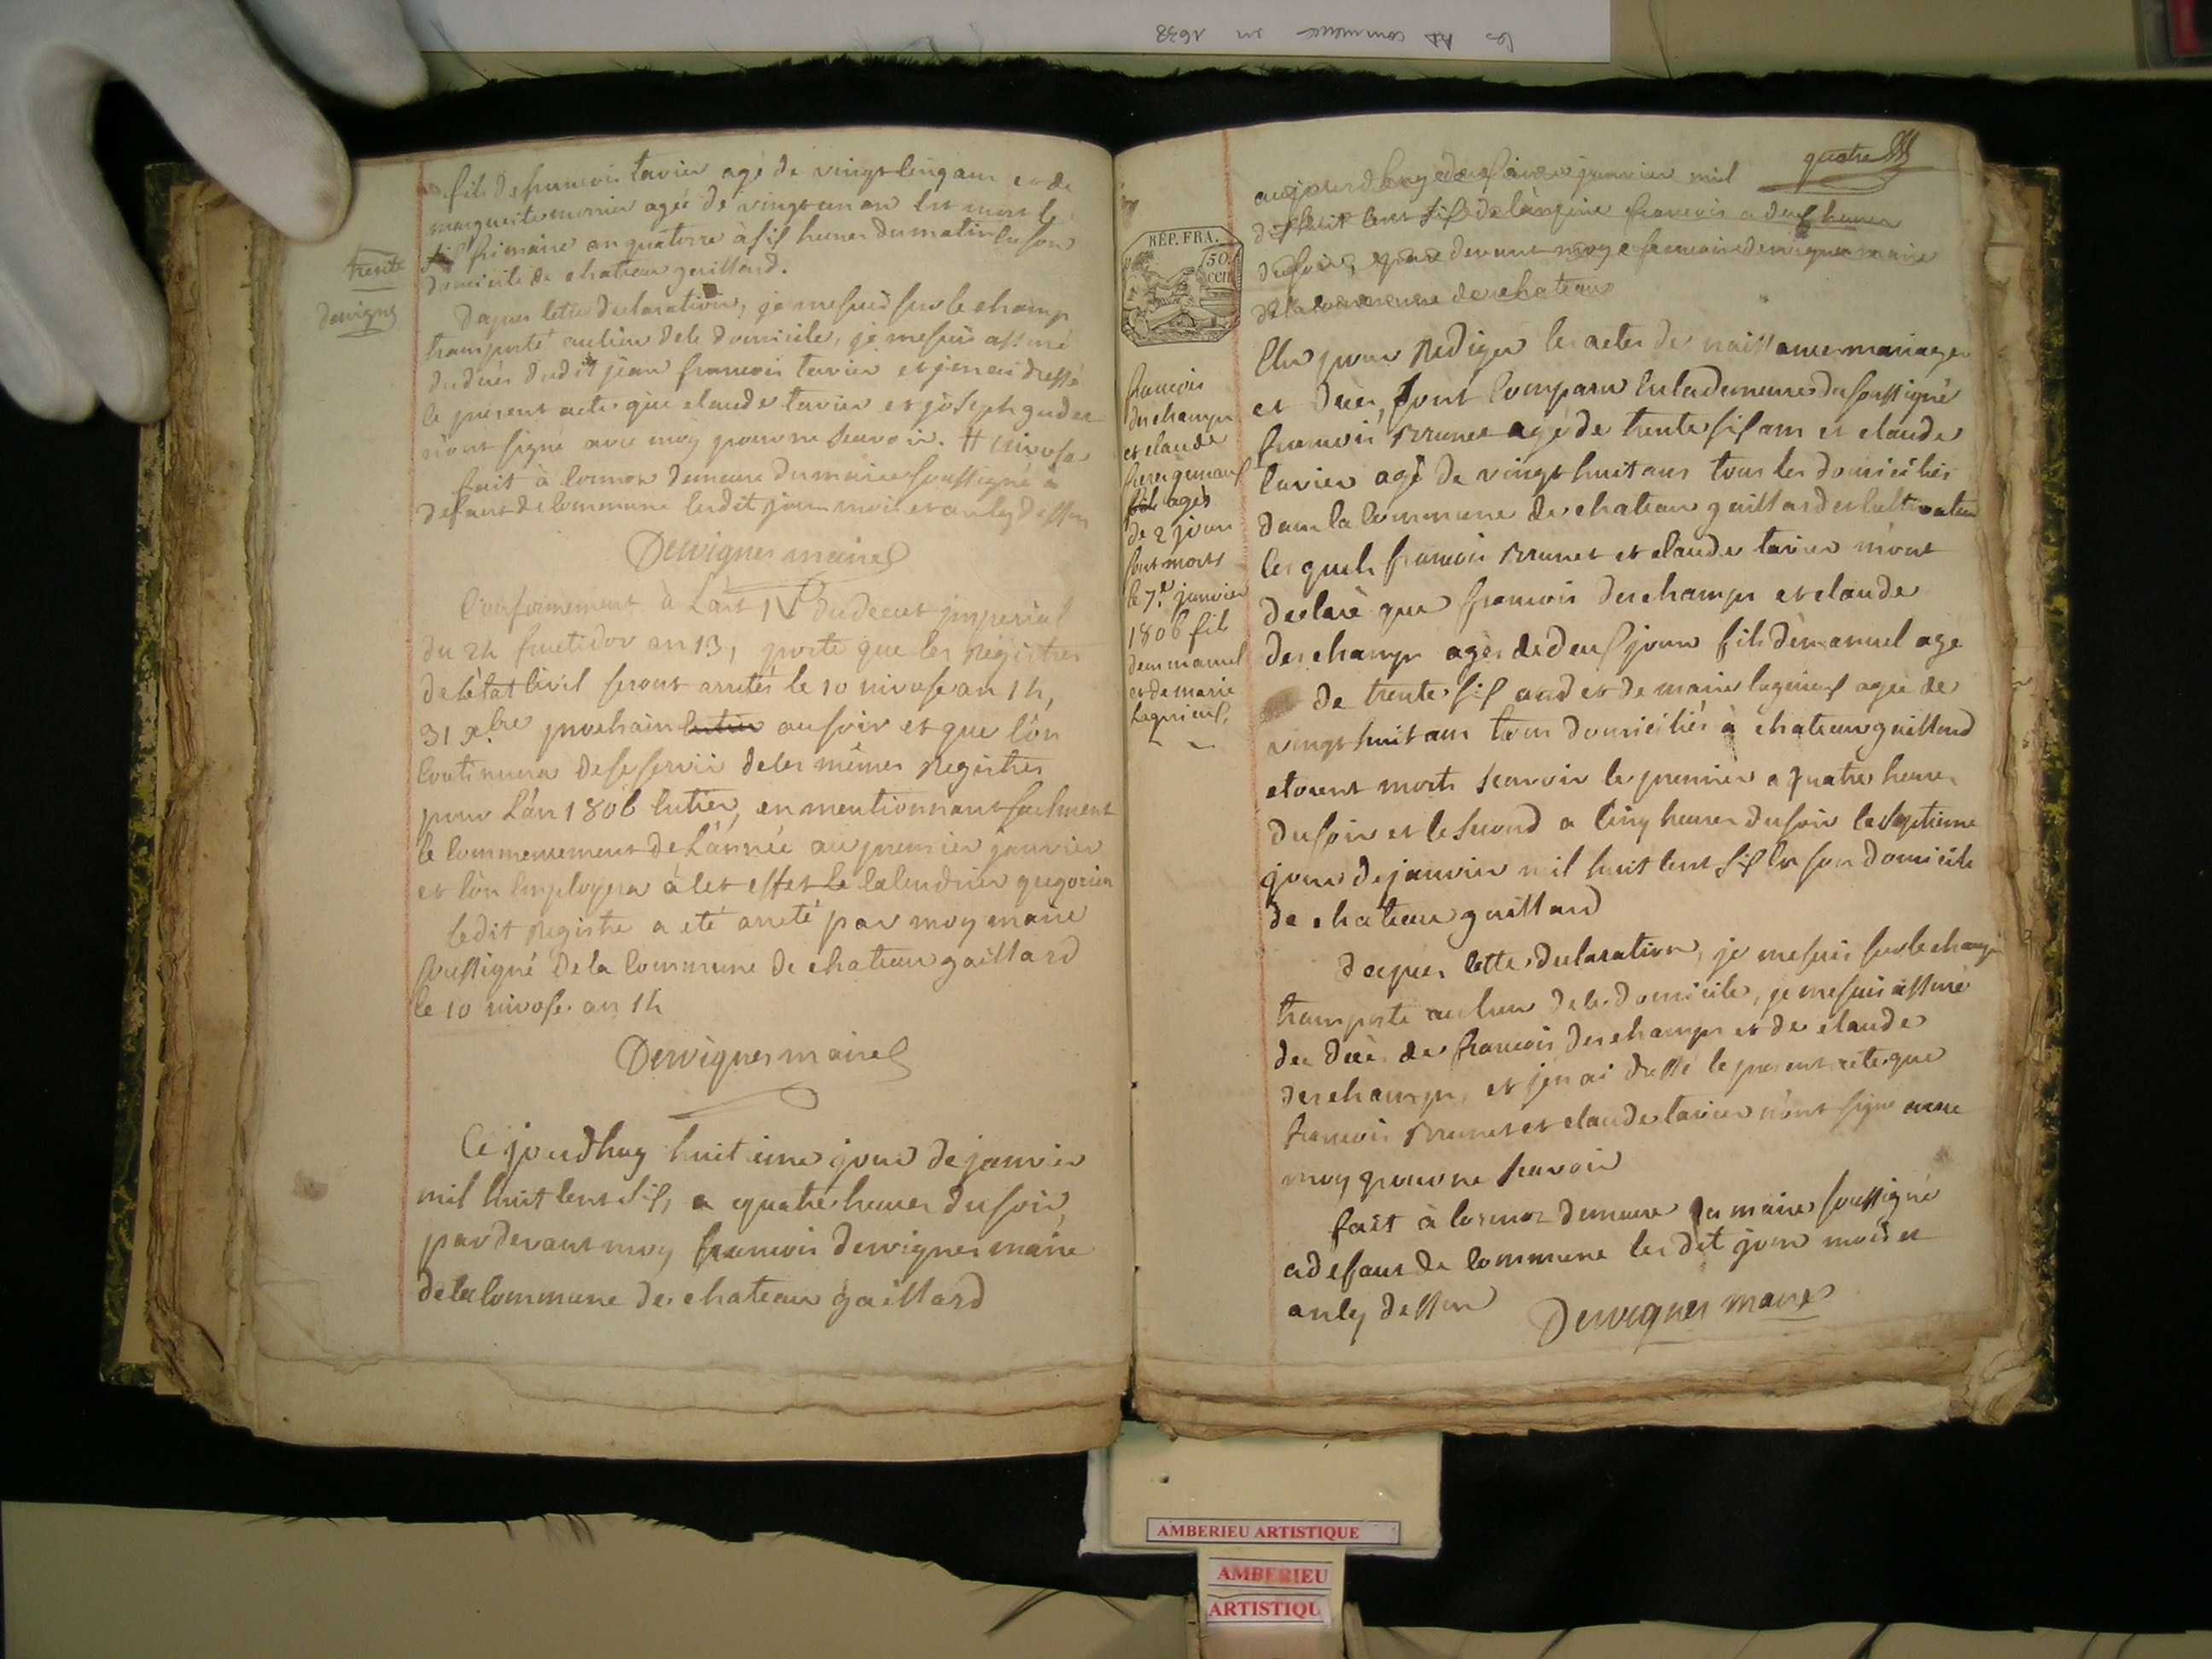 les commence en 1638
fils de francois tavier agé de vingt cinq ans et de
marguerite mornier agée de vingt un an est mort le
frimaire an quatorze à six heures du matin en son
domicile de chateau gaillard.
trente
dervignes
dapres cette declaration, je me suis sur le champ
transporté au lieu de ce domicile, je me suis assuré
du deces dudit jean francois tavier et jen ai dressé
le present acte que claude tavier et joseph
n'ont signé avec moy pour ne scavoir. # nivose
fait à cormoz demeure du maire soussigné à
defaut de commune lesdit jour mois et an cy dessus
Dervignes maire
Conformement à l'art IV du decret jmperial
du 24 fructidor an 13, porte que les registres
de l'état civil seront arretés le 10 nivose an 14,
31 xbre prochain au soir et que l'on
continuera de se servir de ces mêmes registres
pour l'an 1806 entier, en mentionnant seulment
le commencement de l'année au premier janvier
et l'on employera à cet effet le calendrier gregorien
ledit registre a eté arreté par moy maire
soussigné de la commune de chateau gaillard
le 10 nivose an 14
Dervignes maire
Ce jourdhuy huitieme jour de janvier
mil huit cent six, a quatre heures du soir,
pardevant moy francois dervignes maire
de la commune de chateau gaillard
quatre
RÉP. FRA.
50
CEN
aujourdhuy janvier mil
huit cent six de francois a deux heures
du soir, par devant moy francois dervignes maire
de la commune de chateau
francois
deschamps
et claude
freres gemeaux
agés
de 2 jours
sont morts
le 7e janvier
1806 fils
demmanuel
et de marie
Lagnieux,
Elu pour rediger les actes de naissances mariages
et deces, sont comparu en la demeure du soussigné
francois Brunet agé de trente six ans et claude
tavier agé de vingt huit ans tous les domiciliés
dans la commune de chateau gaillard et cultivateur
lesquels francois Brunet et claude tavier m'ont
declaré que francois deschamps et claude
deschamps agés de deux jours fils d'emanuel age
de trente six ans et de marie lagnieux agée de
vingt huit ans tous domiciliés à chateau gaillard
etoient morts scavoir le premier a quatre heures
du soir et le second a cinq heures du soir le septieme
jour de janvier mil huit cent six en son domicile
de chateau gaillard
dapres cette declaration, je me suis sur le champ
transporté au lieu de ce domicile, je me suis assuré
des deces de francois deschamps et de claude
deschamps, et jen ai dressé le present acte que
francois Brunet et claude tavier n'ont signe avec
moy pour ne scavoir
fait à cormoz demeure du maire soussigné
a defaut de commune les dit jour mois et
an cy dessus
Dervignes maire
AMBERIEU ARTISTIQUE
AMBERIEU
ARTISTIQU